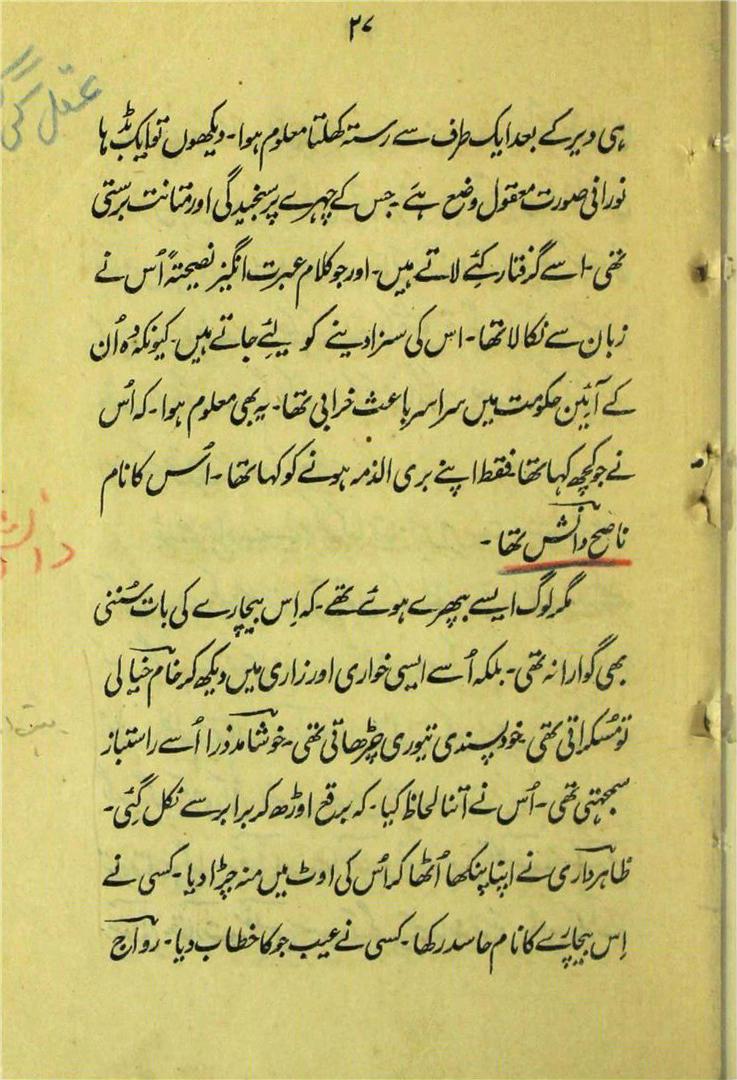 ۲۷
ہی دیر کے بعد ایک طرف سے رستہ کھلتا معلوم ہوا۔ دیکھوں تو ایک بڈہا
نورانی صورت معقول وضع ہے۔ جس کے چہرے پر سنجیدگی اور متانت برستی
تھی۔ اسے گرفتار کئے لاتے ہیں۔ اور جو کلام عبرت انگیز نصیحتہً اُس نے
زبان سے نکالا تھا۔ اس کی سزا دینے کو لیئے جاتے ہیں۔ کیونکہ وُہ اُن
کے آئین حکومت میں سراسر باعث خرابی تھا۔ یہ بھی معلوم ہوا۔ کہ اُس
نے جو کچھ کہا تھا۔ فقط اپنے بری الذمہ ہونے کو کہا تھا۔ اُس کا نام
ناصح دانش تھا۔
مگر لوگ ایسے بپھرے ہوئے تھے۔ کہ اِس بیچارے کی بات سُننی
بھی گوارا نہ تھی۔ بلکہ اُسے ایسی خواری اور زاری میں دیکھ کر خام خیالی
تو مُسکراتی تھی۔ خود پسندی تیوری چڑھاتی تھی۔ خوشامد ذرا اُسے راستباز
سمجھتی تھی۔ اُس نے اتنا لحاظ کیا۔ کہ برقع اوڑھ کر برابر سے نکل گئی۔
ظاہرداری نے اپنا پنکھا اُٹھا کر اُس کی اوٹ میں منہ چڑا دیا۔ کسی نے
اِس بیچارے کا نام حاسد رکھا۔ کسی نے عیب جو کا خطاب دیا۔ رواج